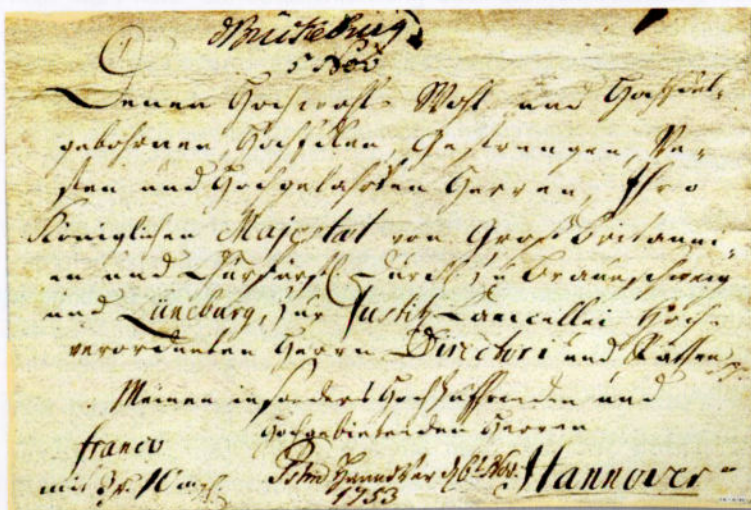 5 Nov
Denen Hochwohl- Wohl und Hochedel-
gebohrnen, Hochedlen, Gestrengen, Ve-
sten und Hochgelahrten Herren, Ihro
Königlichen Majestæt von Großbritanni-
en und Churfürstl. Durchl. zu Braunschweig
und Lüneburg, zur Justitz Cancellei Hoch-
verordneten Herrn Directori und Räthen
Meinen insonders Hochzuehrenden und
Hochgebietenden Herren
franco
mit Hannover d 6t Nov. Hannover
1753